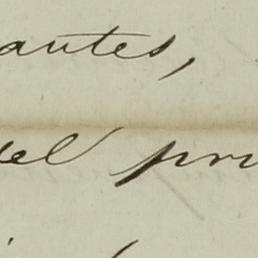 antes,
del pri